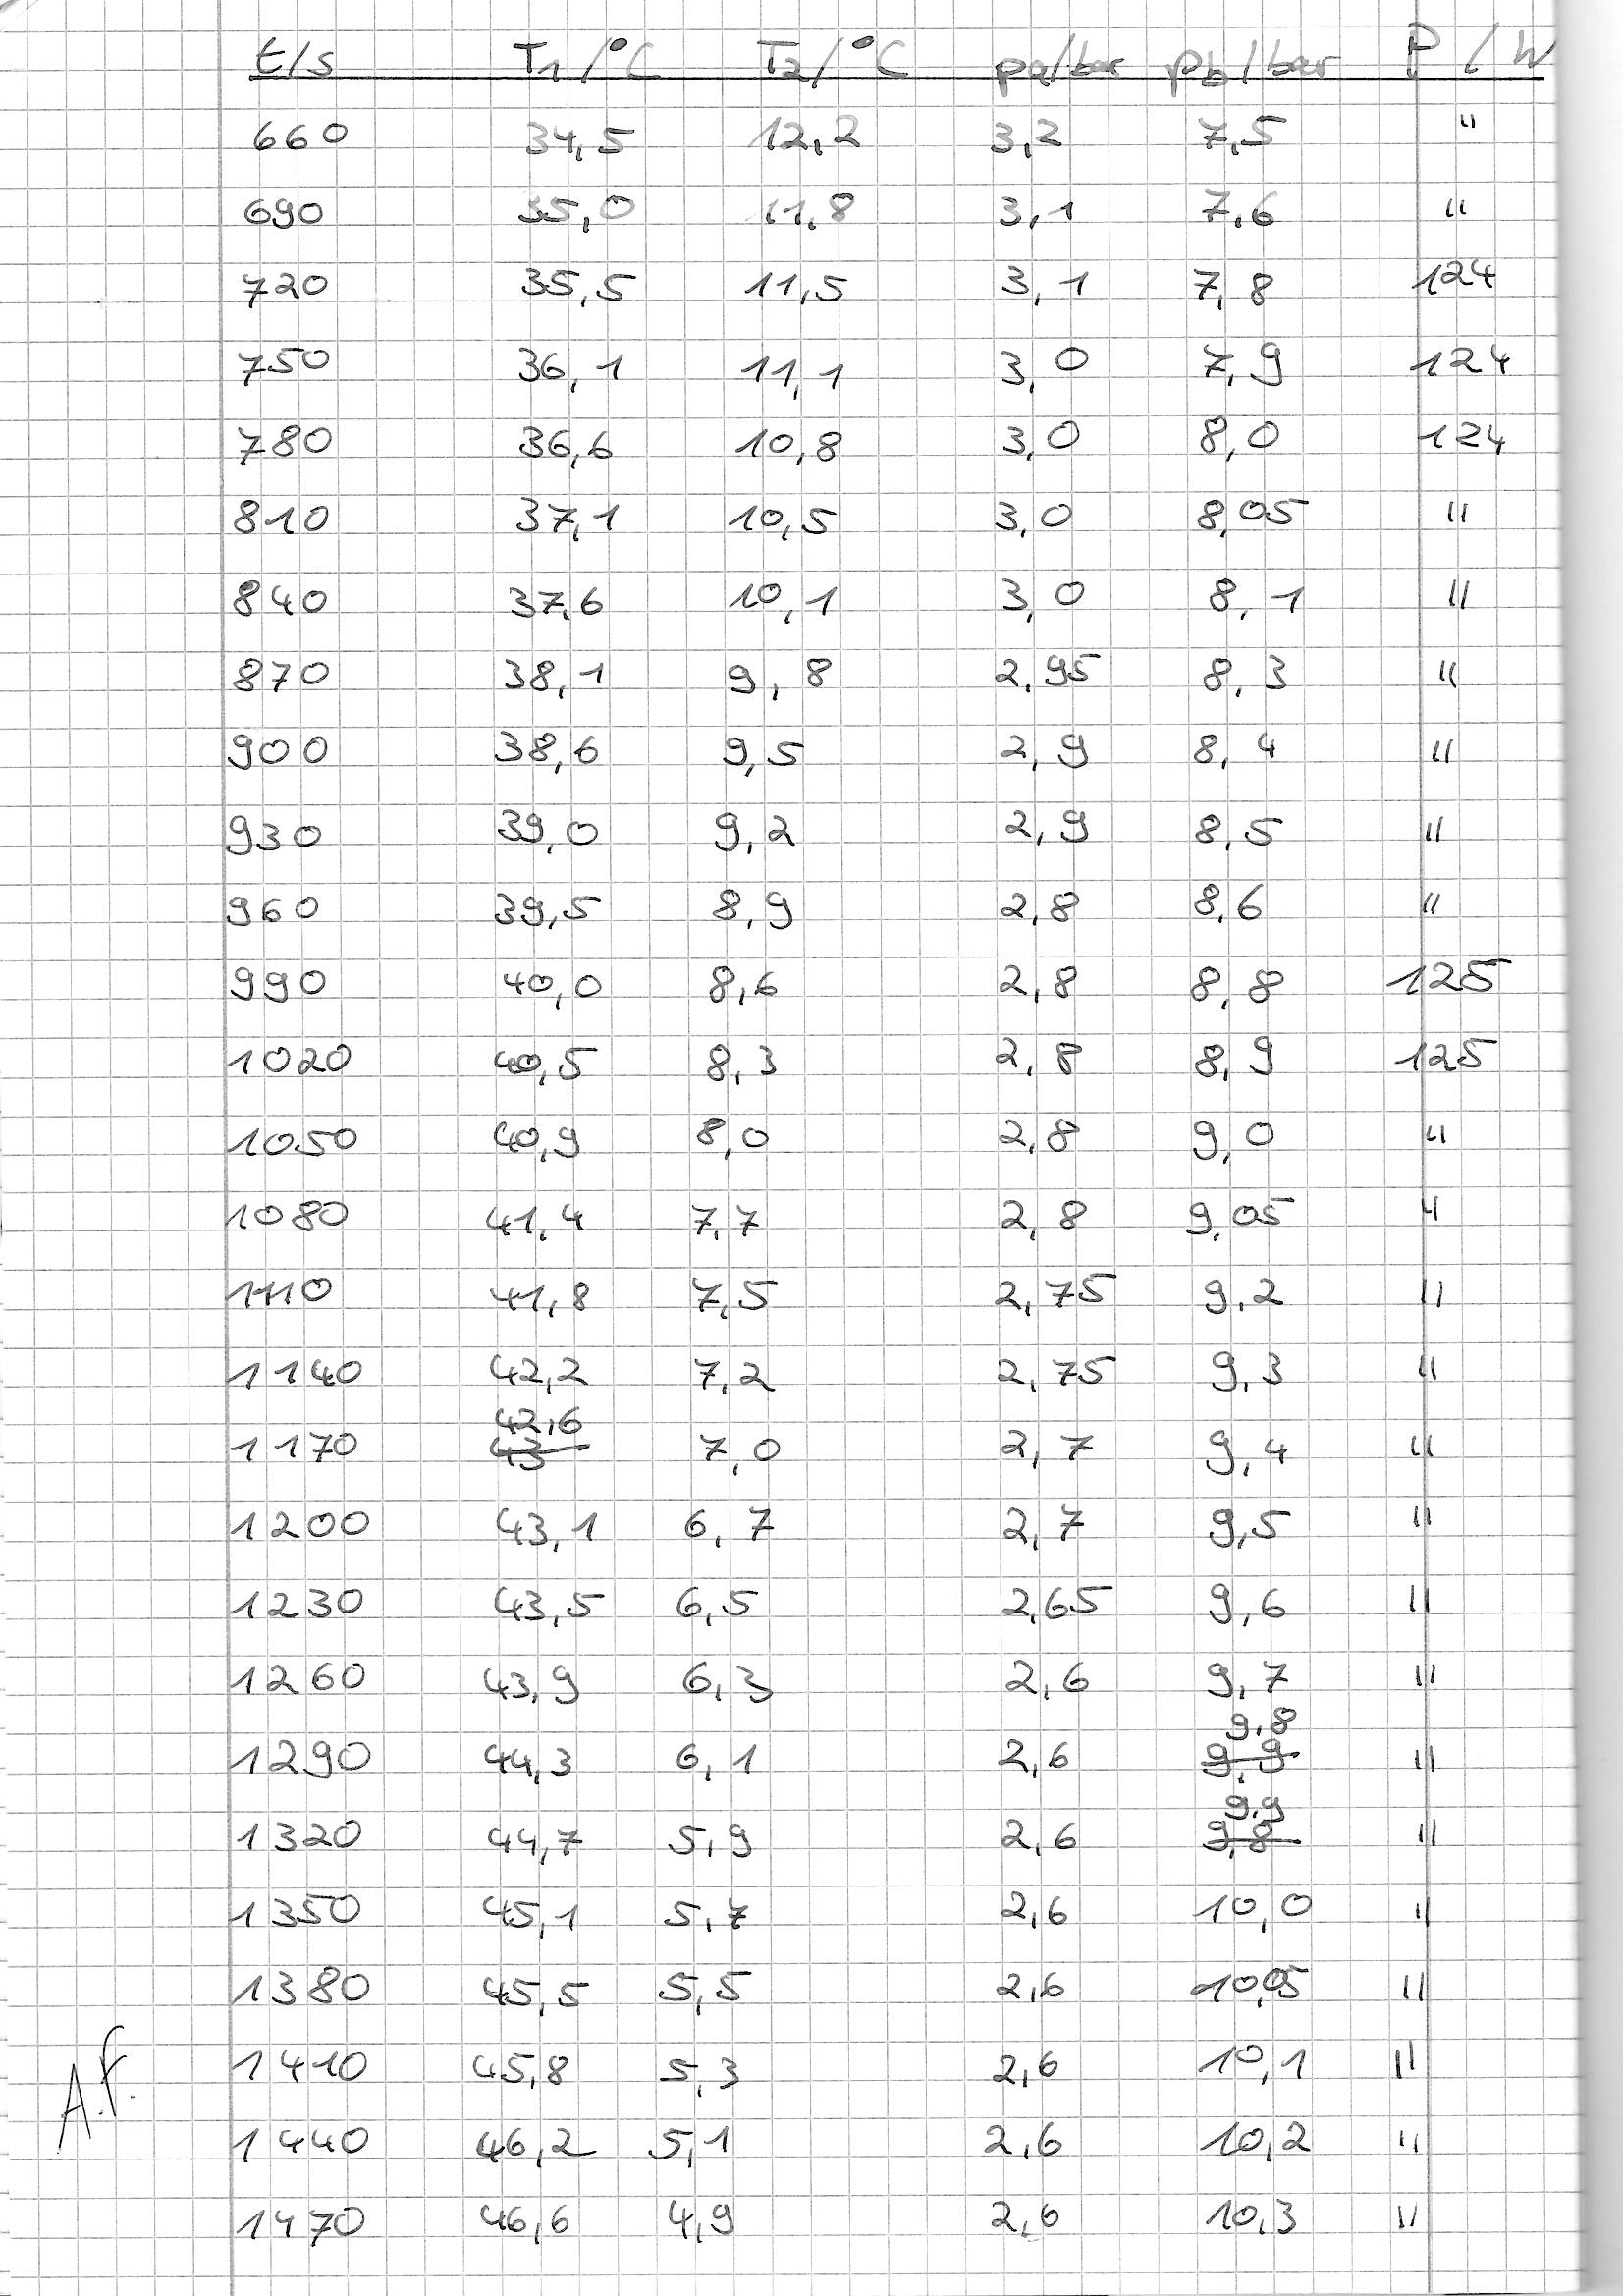 t/s T₁/°C T₂/°C pa/bar pb/bar P/W
660 34,5 12,2 3,2 7,5 "
690 35,0 11,8 3,1 7,6 "
720 35,5 11,5 3,1 7,8 124
750 36,1 11,1 3,0 7,9 124
780 36,6 10,8 3,0 8,0 124
810 37,1 10,5 3,0 8,05 "
840 37,6 10,1 3,0 8,1 "
870 38,1 9,8 2,95 8,3 "
900 38,6 9,5 2,9 8,4 "
930 39,0 9,2 2,9 8,5 "
960 39,5 8,9 2,8 8,6 "
990 40,0 8,6 2,8 8,8 125
1020 40,5 8,3 2,8 8,9 125
1050 40,9 8,0 2,8 9,0 "
1080 41,4 7,7 2,8 9,05 "
1110 41,8 7,5 2,75 9,2 "
1140 42,2 7,2 2,75 9,3 "
42,6
1170 43 7,0 2,7 9,4 "
1200 43,1 6,7 2,7 9,5 "
1230 43,5 6,5 2,65 9,6 "
1260 43,9 6,3 2,6 9,7 "
9,8
1290 44,3 6,1 2,6 9,9 "
9,9
1320 44,7 5,9 2,6 9,8 "
1350 45,1 5,7 2,6 10,0 "
1380 45,5 5,5 2,6 10,05 "
1410 45,8 5,3 2,6 10,1 "
A.F.
1440 46,2 5,1 2,6 10,2 "
1470 46,6 4,9 2,6 10,3 "